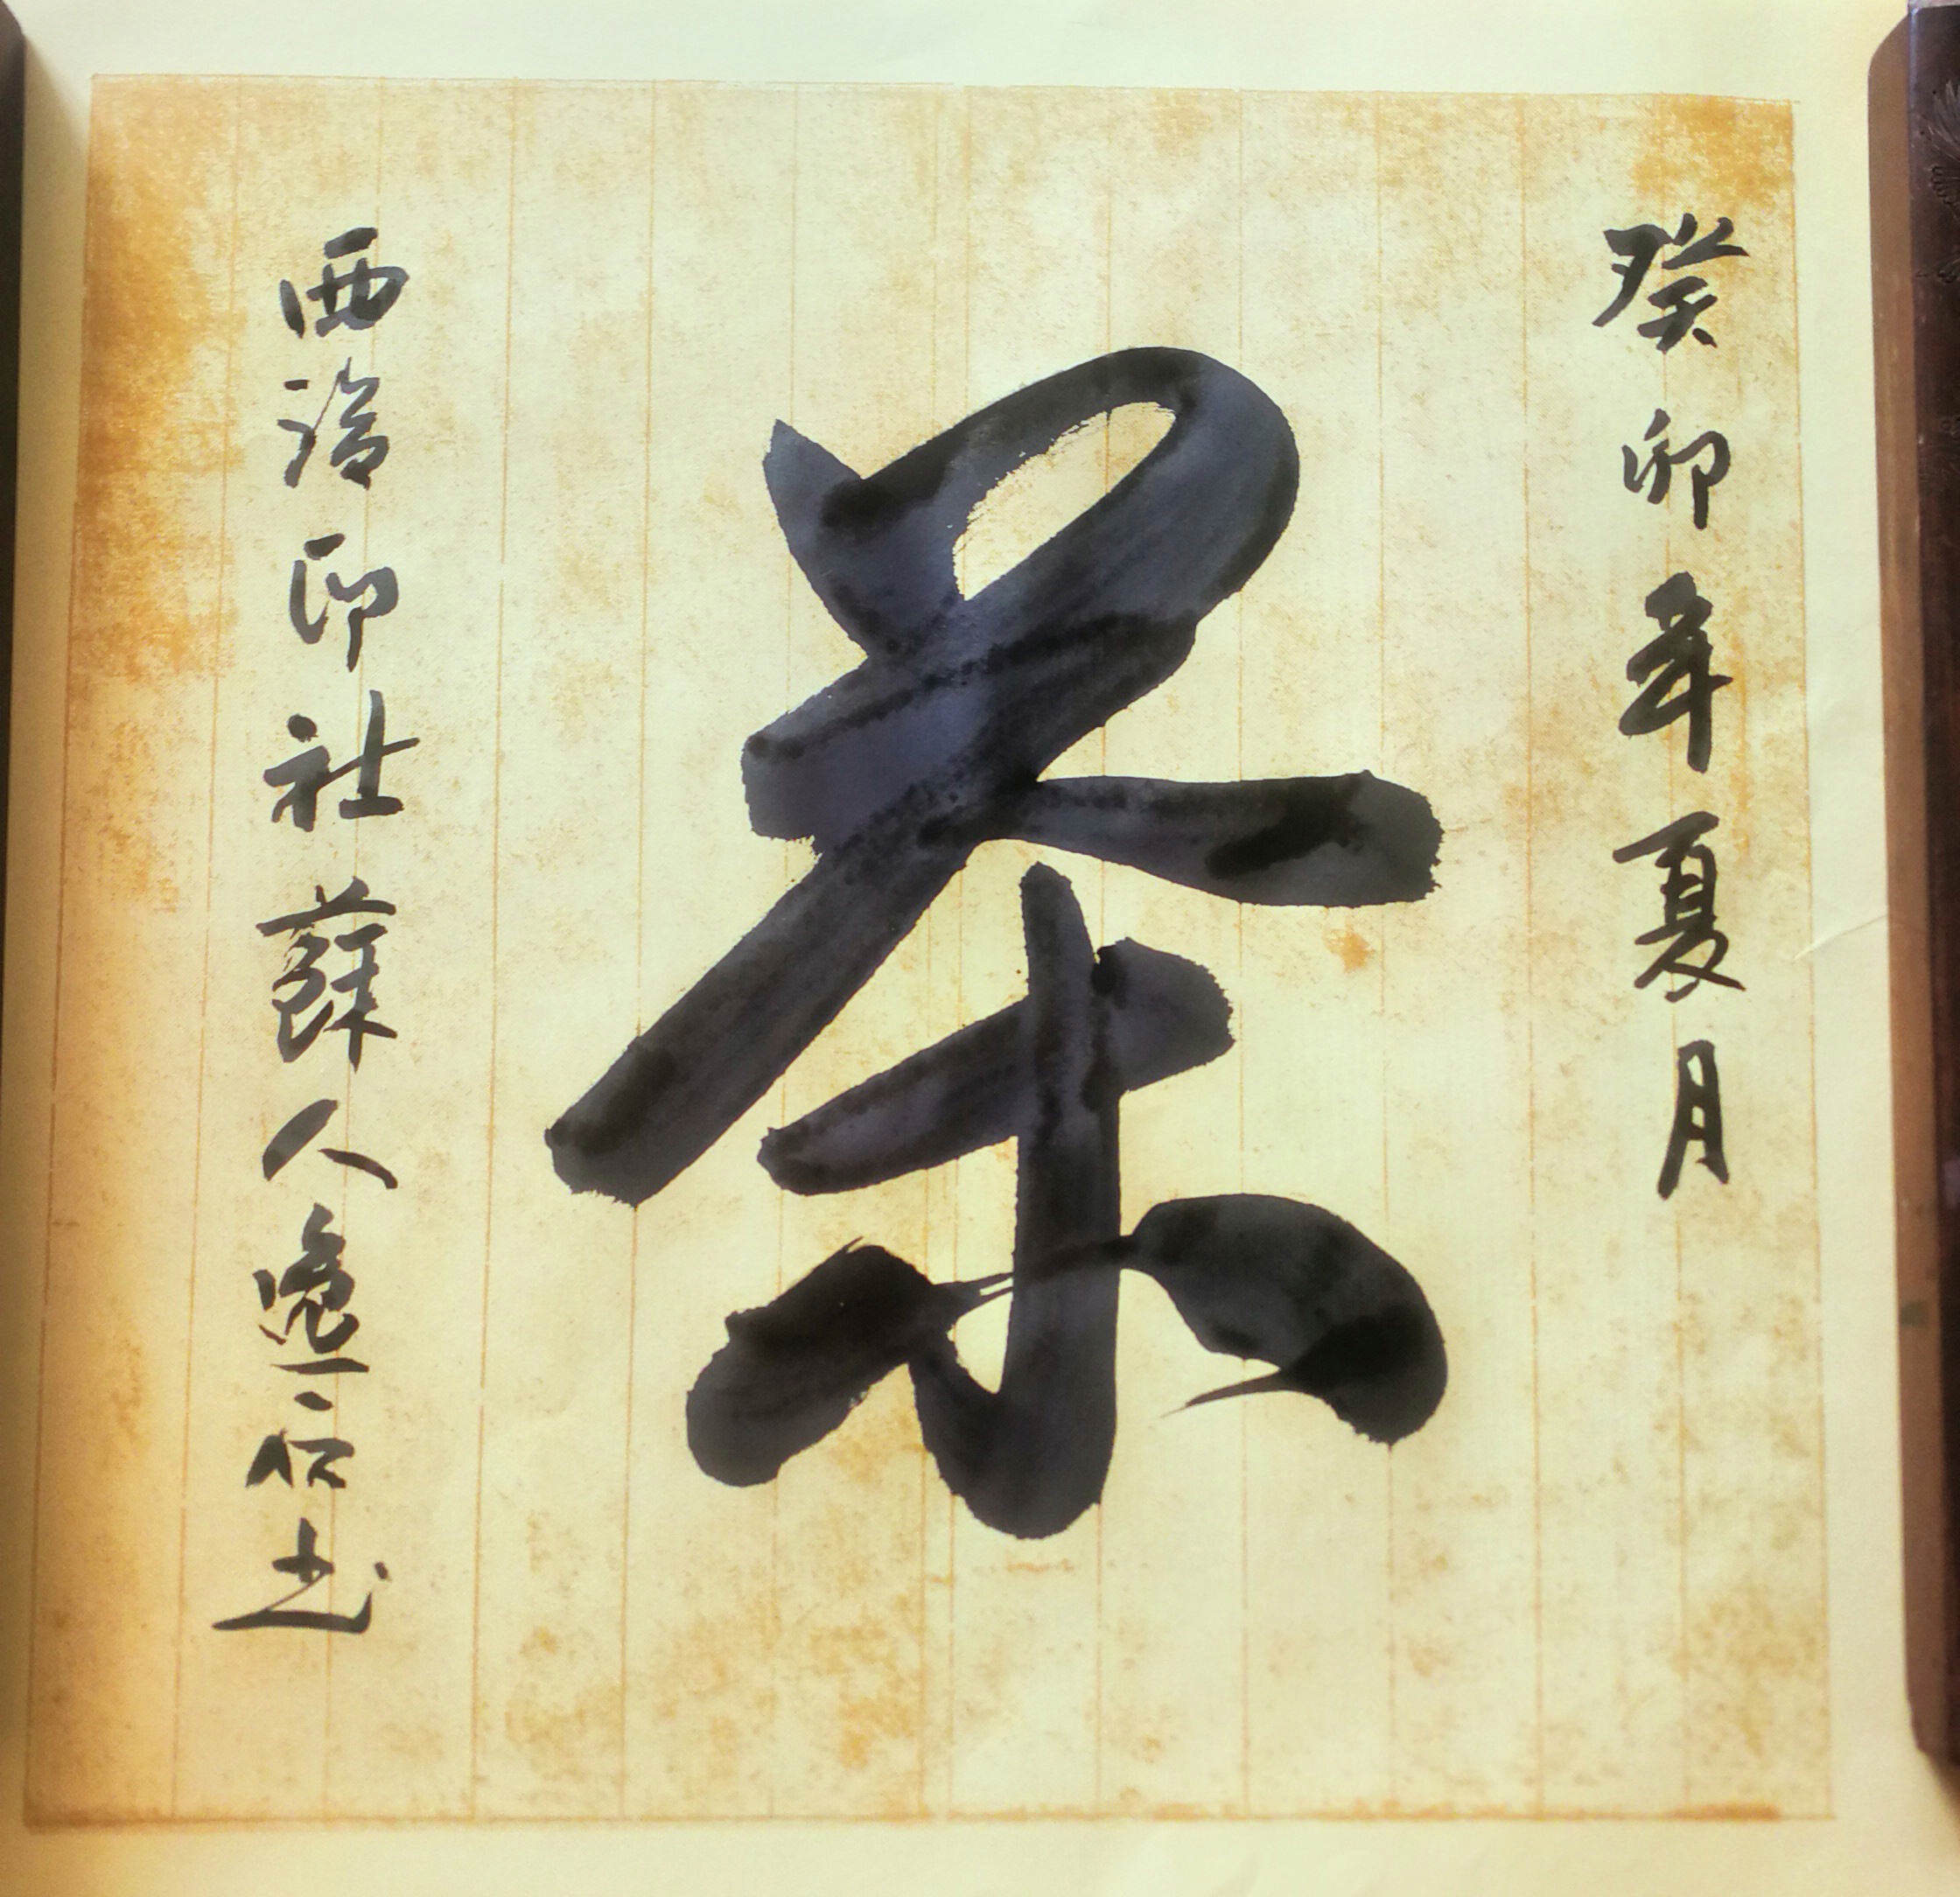 癸卯年夏月
茶
西泠印社蘇人逸书